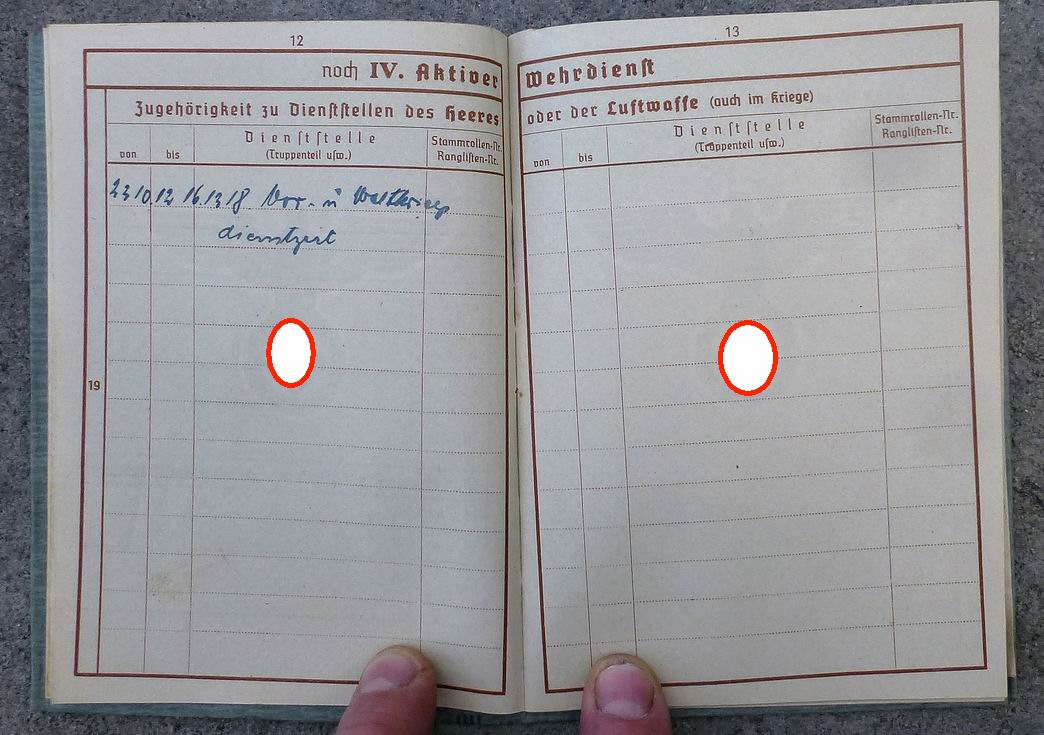 12
noch IV. Aktiver
Zugehörigkeit zu Dienststellen des Heeres
von
bis
Dienststelle
(Truppenteil usw.)
Stammrollen-Nr.
Ranglisten-Nr.
16.12.18. Vor- u Weltkriegs
dienstzeit
19
13
Wehrdienst
oder der Luftwaffe (auch im Kriege)
von
bis
Dienststelle
(Truppenteil usw.)
Stammrollen-Nr.
Ranglisten-Nr.